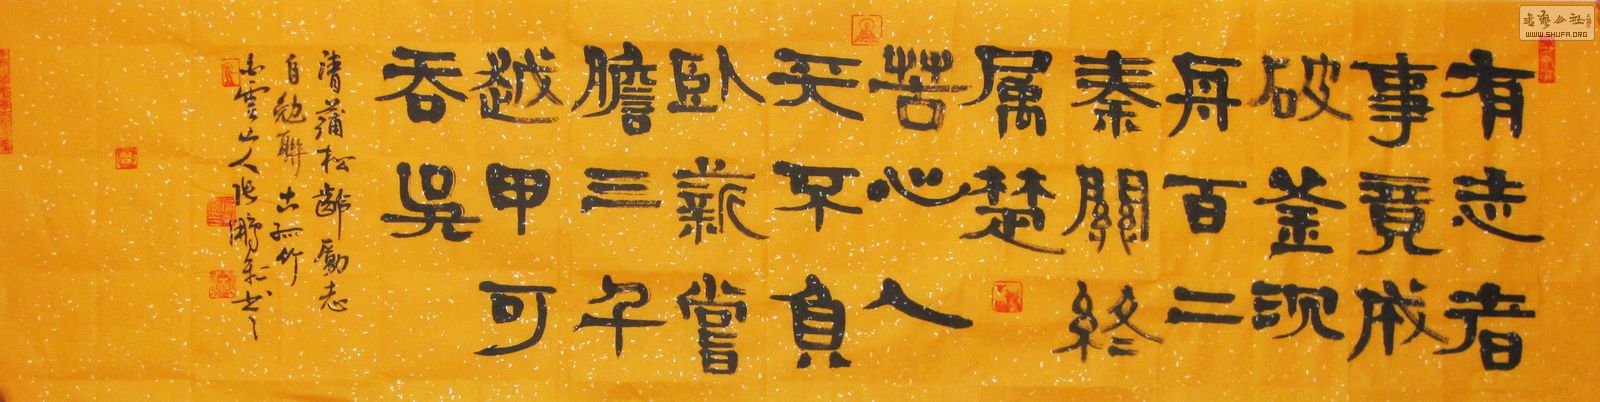 有志者
事竟成
破釜沉
舟百二
秦關終
属楚
苦心人
天不負
卧薪嘗
膽三千
越甲可
吞吳
清蒲松齡勵志
自勉聯 古孤竹
雲山人張鵬
書藝公社
WWW.SHUFA.ORG